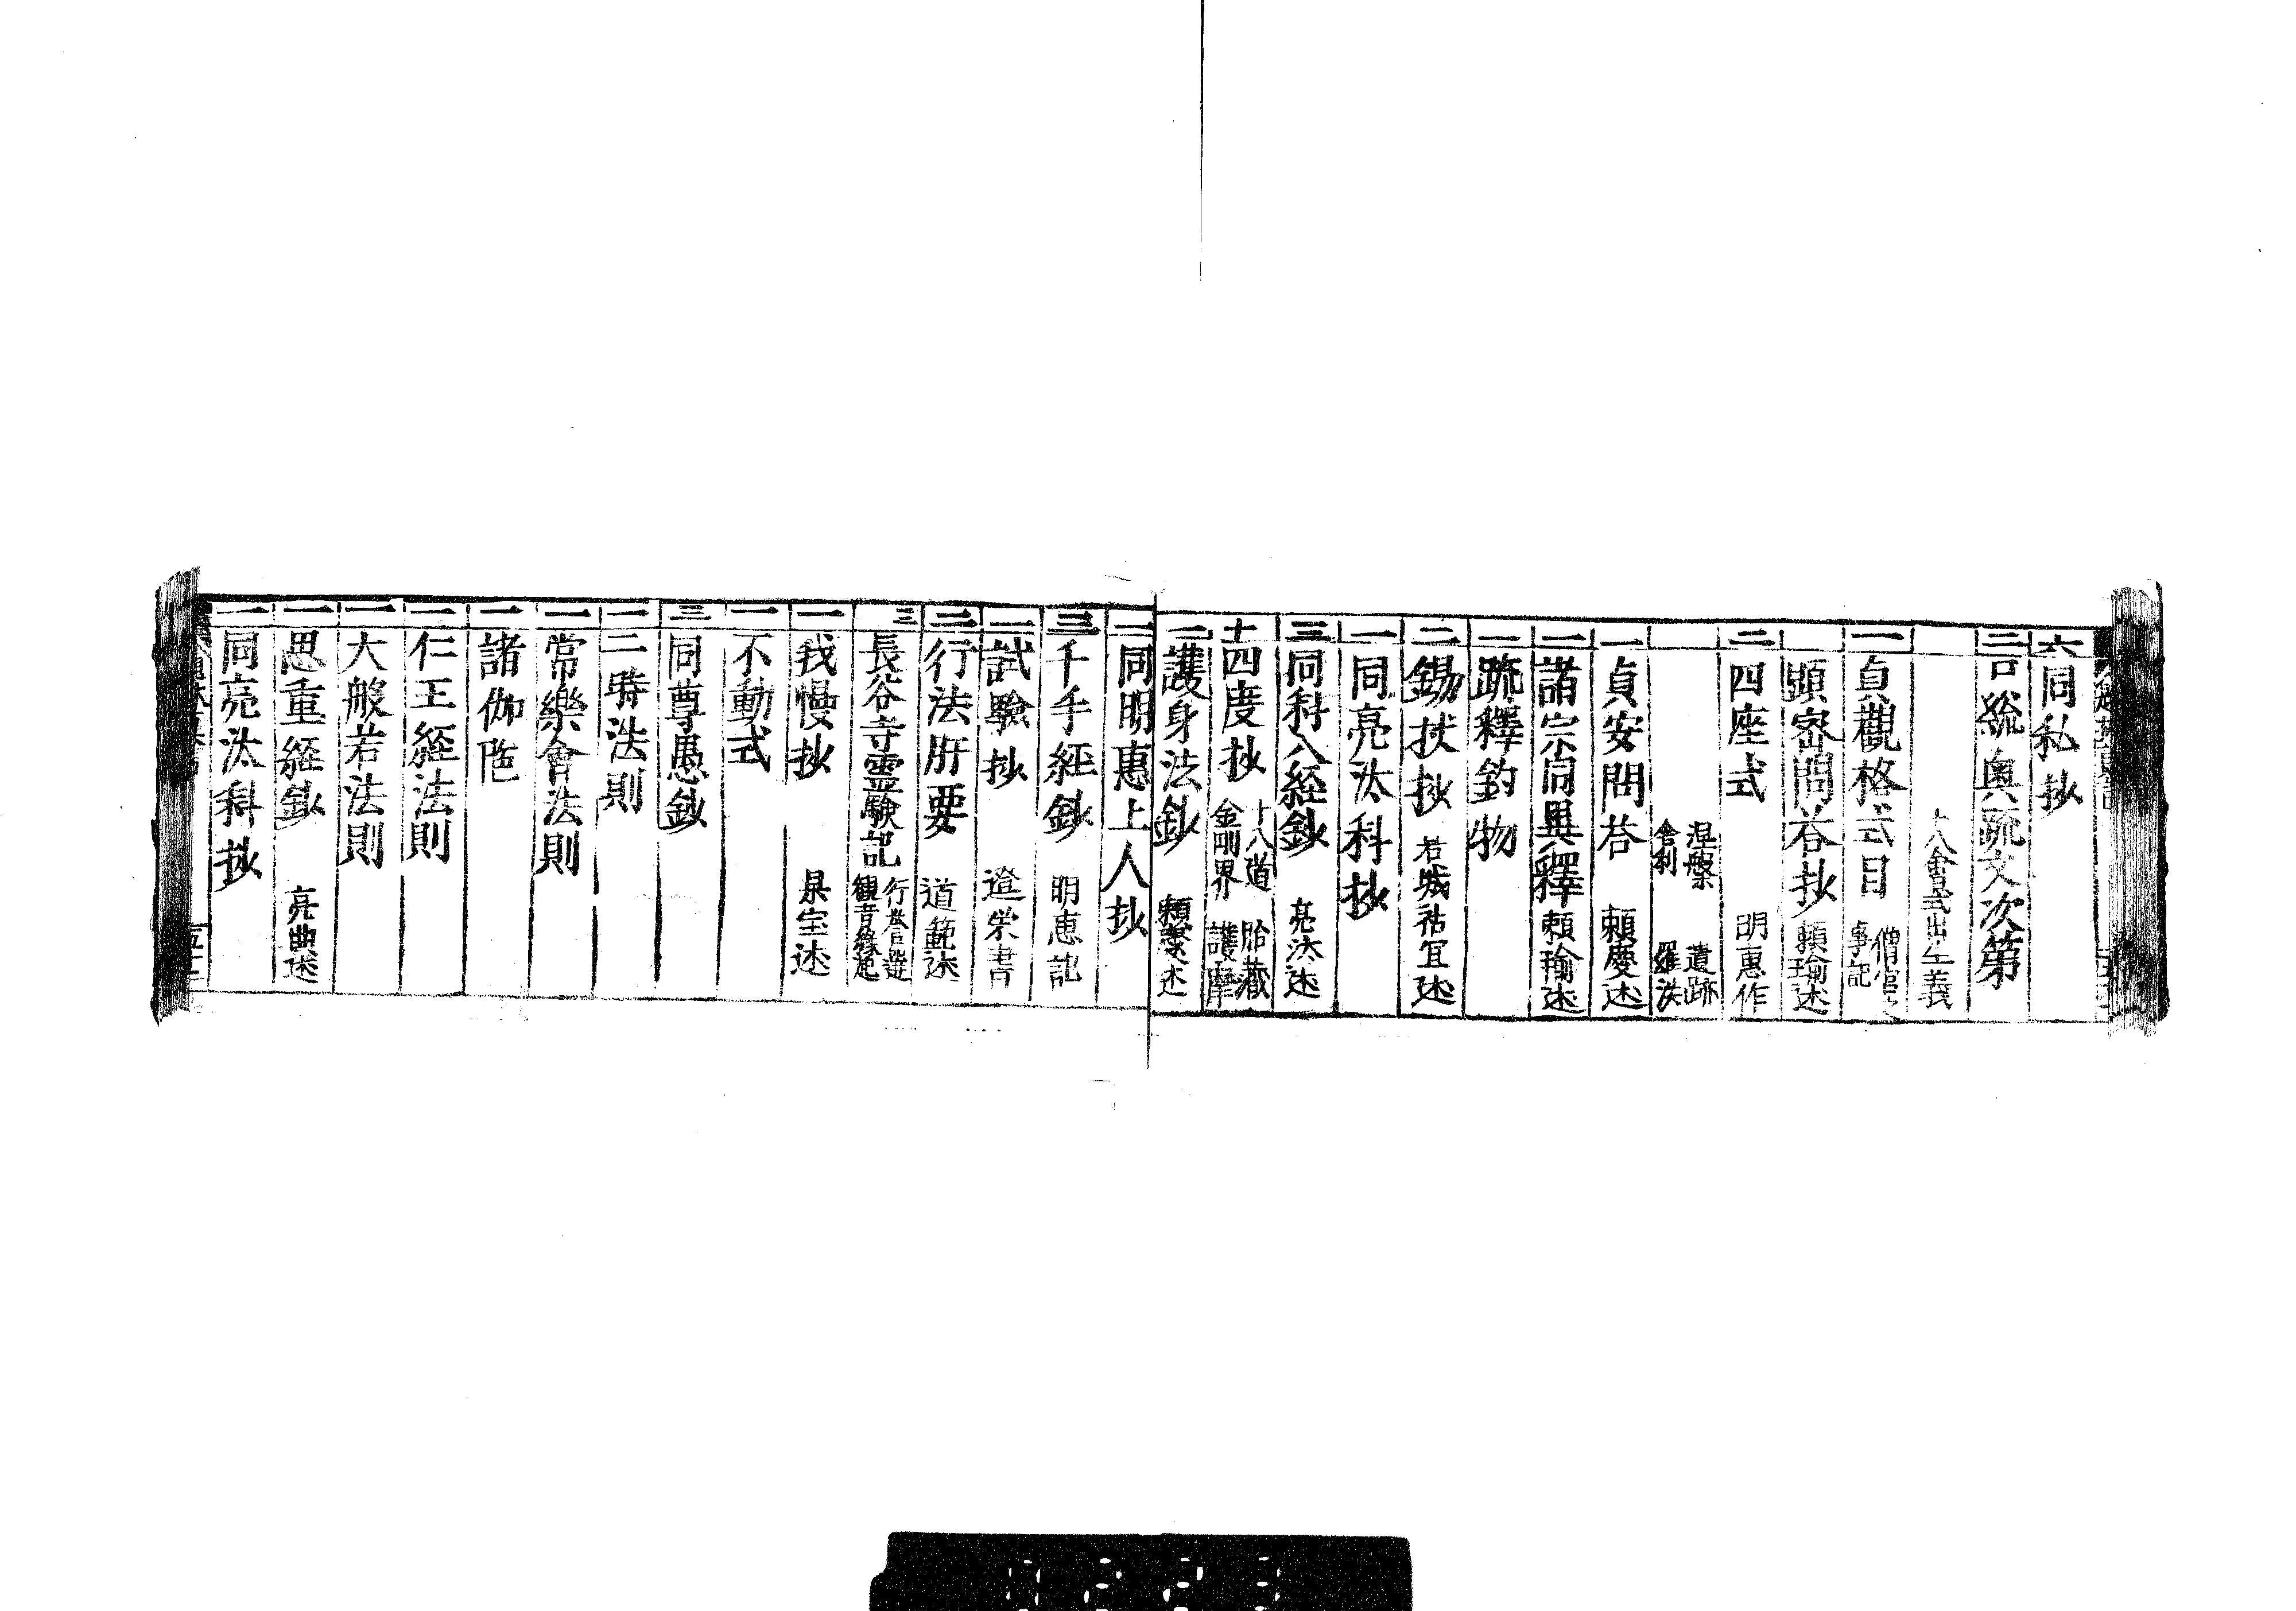 六 同私抄
三 口䟽奥疏文次第
十八會式出生義
一 貞觀格式目 僧 事記
顕密問荅抄 頼瑜述
二 四座式 明惠作
涅槃 遺跡
舎利 羅漢
一 貞安問荅 頼慶述
一 諸宗同異釋 頼瑜述
一 疏釋釣物
二 錫杖抄 若城祐宜述
一 同亮汰科抄
三 同科八経鈔 亮汰述
十 四度抄 十八道 胎藏 金剛界 護摩
二 護身法鈔 述
二 同明惠上人抄
三 千手経鈔 明惠記
二 試驗抄 證栄書
三 行法肝要 道範述
三 長谷寺霊驗記 行誉撰 観音縁起
一 我慢抄 杲宝述
一 不動式
三 同尊愚鈔
一 二時法則
一 常樂會法則
一 諸伽陁
一 仁王経法則
一 大般若法則
一 思重経鈔 亮典述
一 同亮汰科抄